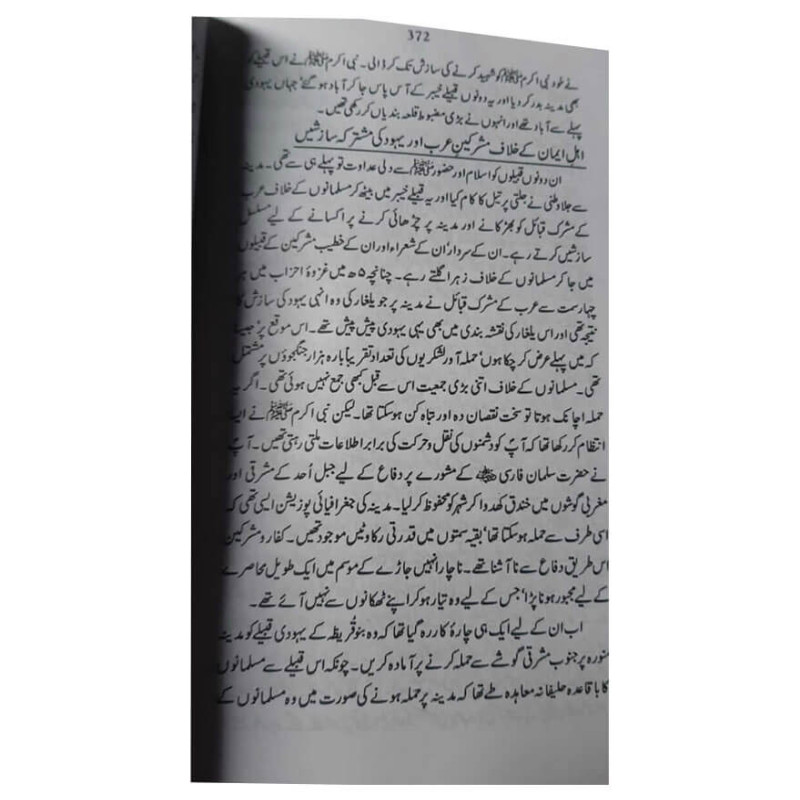 372
نے خود نبی اکرم ﷺ کو شہید کرنے کی سازش تک کر ڈالی۔ نبی اکرم ﷺ نے اس قبیلے کو
بھی مدینہ بدر کر دیا اور یہ دونوں قبیلے خیبر کے آس پاس جا کر آباد ہو گئے' جہاں یہودی
پہلے سے آباد تھے اور انہوں نے بڑی مضبوط قلعہ بندیاں کر رکھی تھیں۔
اہل ایمان کے خلاف مشرکینِ عرب اور یہود کی مشترکہ سازشیں
ان دونوں قبیلوں کو اسلام اور حضور ﷺ سے دلی عداوت تو پہلے ہی سے تھی۔ مدینہ
سے جلاوطنی نے جلتی پر تیل کا کام کیا اور یہ قبیلے خیبر میں بیٹھ کر مسلمانوں کے خلاف عرب
کے مشرک قبائل کو بھڑکانے اور مدینہ پر چڑھائی کرنے پر اکسانے کے لیے مسلسل
سازشیں کرتے رہے۔ ان کے سردار' ان کے شعراء اور ان کے خطیب مشرکین کے قبیلوں
میں جا کر مسلمانوں کے خلاف زہر اگلتے رہے۔ چنانچہ ۵ھ میں غزوۂ احزاب میں ہر
چہار سمت سے عرب کے مشرک قبائل نے مدینہ پر جو یلغار کی وہ انہی یہود کی سازش کا
نتیجہ تھی اور اس یلغار کی نقشہ بندی میں بھی یہی یہودی پیش پیش تھے۔ اس موقع پر' جیسا
کہ میں پہلے عرض کر چکا ہوں' حملہ آور لشکریوں کی تعداد تقریباً بارہ ہزار جنگجوؤں پر مشتمل
تھی۔ مسلمانوں کے خلاف اتنی بڑی جمعیت اس سے قبل کبھی جمع نہیں ہوئی تھی۔ اگر یہ
حملہ اچانک ہوتا تو سخت نقصان دہ اور تباہ کن ہو سکتا تھا۔ لیکن نبی اکرم ﷺ نے ایسا
انتظام کر رکھا تھا کہ آپؐ کو دشمنوں کی نقل و حرکت کی برابر اطلاعات ملتی رہتی تھیں۔ آپؐ
نے حضرت سلمان فارسی ؓ کے مشورے پر دفاع کے لیے جبل اُحد کے مشرقی اور
مغربی گوشوں میں خندق کھدوا کر شہر کو محفوظ کر لیا۔ مدینہ کی جغرافیائی پوزیشن ایسی تھی کہ
اسی طرف سے حملہ ہو سکتا تھا' بقیہ سمتوں میں قدرتی رکاوٹیں موجود تھیں۔ کفار و مشرکین
اس طریق دفاع سے نا آشنا تھے۔ ناچار انہیں جاڑے کے موسم میں ایک طویل محاصرے
کے لیے مجبور ہونا پڑا' جس کے لیے وہ تیار ہو کر اپنے ٹھکانوں سے نہیں آئے تھے۔
اب ان کے لیے ایک ہی چارۂ کار رہ گیا تھا کہ وہ بنو قُریظہ کے یہودی قبیلے کو مدینہ
منورہ پر جنوب مشرقی گوشے سے حملہ کرنے پر آمادہ کریں۔ چونکہ اس قبیلے سے مسلمانوں
کا باقاعدہ حلیفانہ معاہدہ طے تھا کہ مدینہ پر حملہ ہونے کی صورت میں وہ مسلمانوں کے